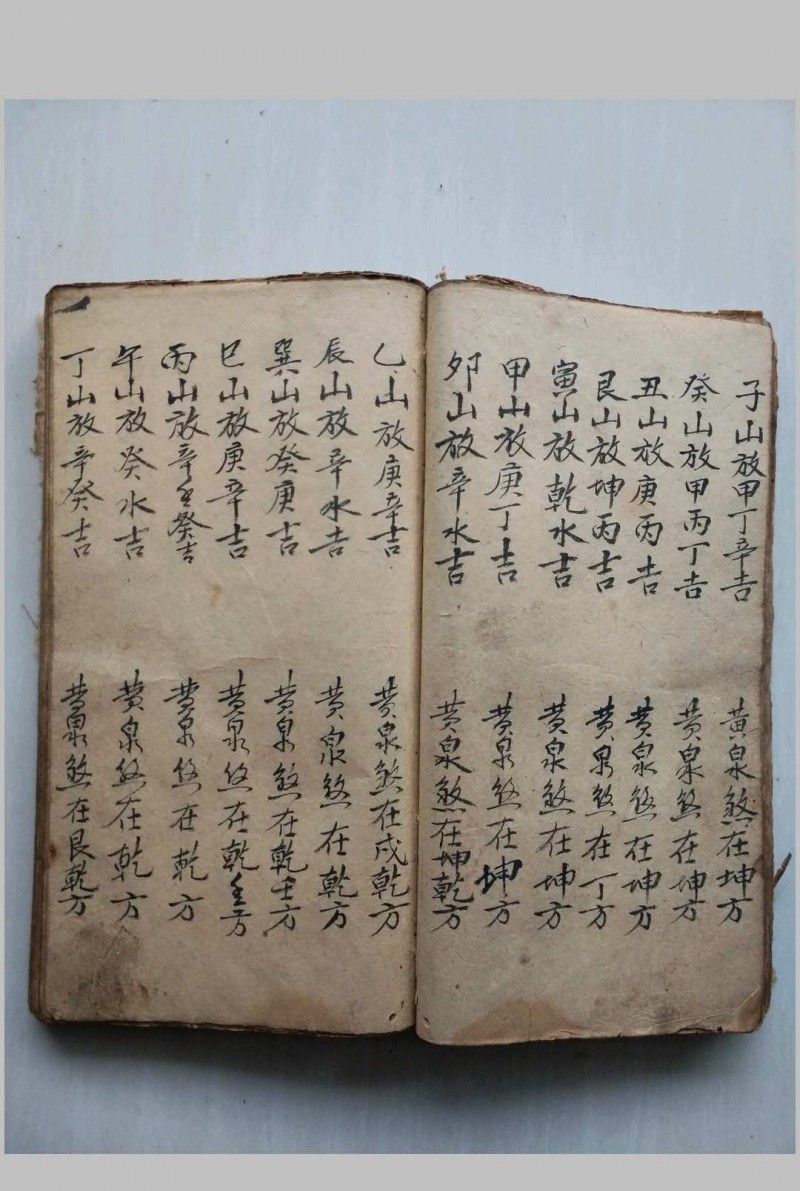 子山放甲丁辛吉 黄泉煞在坤方
癸山放甲丙丁吉 黄泉煞在坤方
丑山放庚丙吉 黄泉煞在坤方
艮山放坤丙吉 黄泉煞在丁方
寅山放乾水吉 黄泉煞在坤方
甲山放庚丁吉 黄泉煞在坤方
卯山放辛水吉 黄泉煞在坤乾方
乙山放庚辛吉 黄泉煞在戌乾方
辰山放辛水吉 黄泉煞在乾方
巽山放癸庚吉 黄泉煞在乾壬方
巳山放庚辛吉 黄泉煞在乾壬方
丙山放辛癸吉 黄泉煞在乾方
午山放癸水吉 黄泉煞在乾方
丁山放辛癸吉 黄泉煞在艮乾方